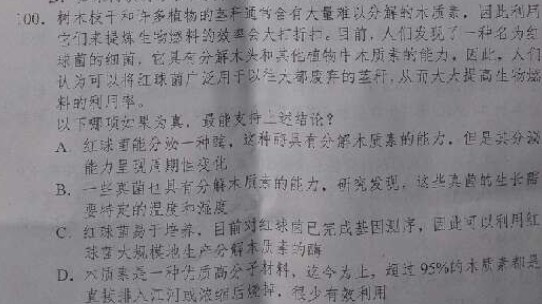 100. 树木枝干和许多植物的茎秆通常含有大量难以分解的木质素，因此利用
它们来提炼生物燃料的效率会大打折扣。目前，人们发现了一种名为红
球菌的细菌，它具有分解木头和其他植物中木质素的能力，因此，人们
认为可以将红球菌广泛用于以往大都废弃的茎秆，从而大大提高生物燃
料的利用率。
以下哪项如果为真，最能支持上述结论？
A. 红球菌能分泌一种酶，这种酶具有分解木质素的能力，但是其分泌
能力呈现周期性变化
B. 一些真菌也具有分解木质素的能力，研究发现，这些真菌的生长需
要特定的湿度和温度
C. 红球菌易于培养，目前对红球菌已完成基因测序，因此可以利用红
球菌大规模地生产分解木质素的酶
D. 木质素是一种优质高分子材料，迄今为止，超过95%的木质素都是
直接排入江河或浓缩后烧掉，很少有效利用